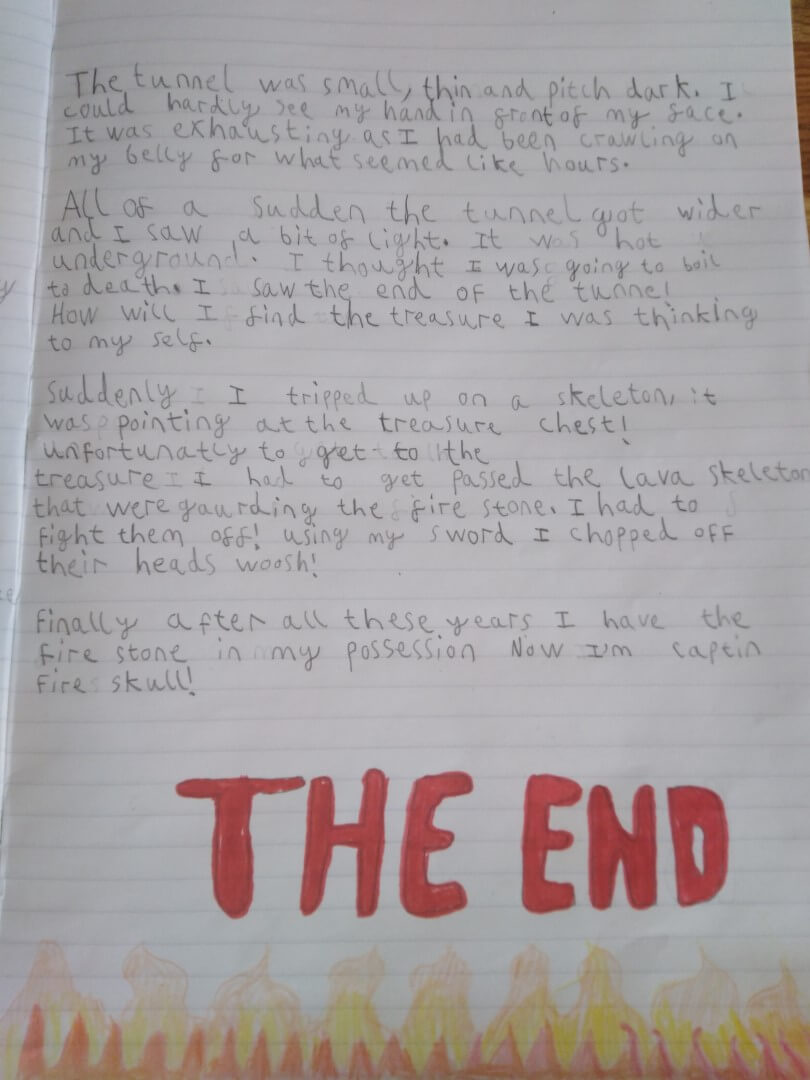 The tunnel was small, thin and pitch dark. I
could hardly see my hand in front of my face.
It was exhausting as I had been crawling on
my belly for what seemed like hours.
All of a sudden the tunnel got wider
and I saw a bit of light. It was hot
underground. I thought I was going to boil
to death. I saw the end of the tunnel
How will I find the treasure I was thinking
to my self.
Suddenly I tripped up on a skeleton, it
was pointing at the treasure chest!
unfortunatly to get to the
treasure I had to get passed the lava skeleton
that were gaurding the fire stone. I had to
fight them off! using my sword I chopped off
their heads woosh!
Finally after all these years I have the
fire stone in my possession Now I'm captin
fire skull!
THE END